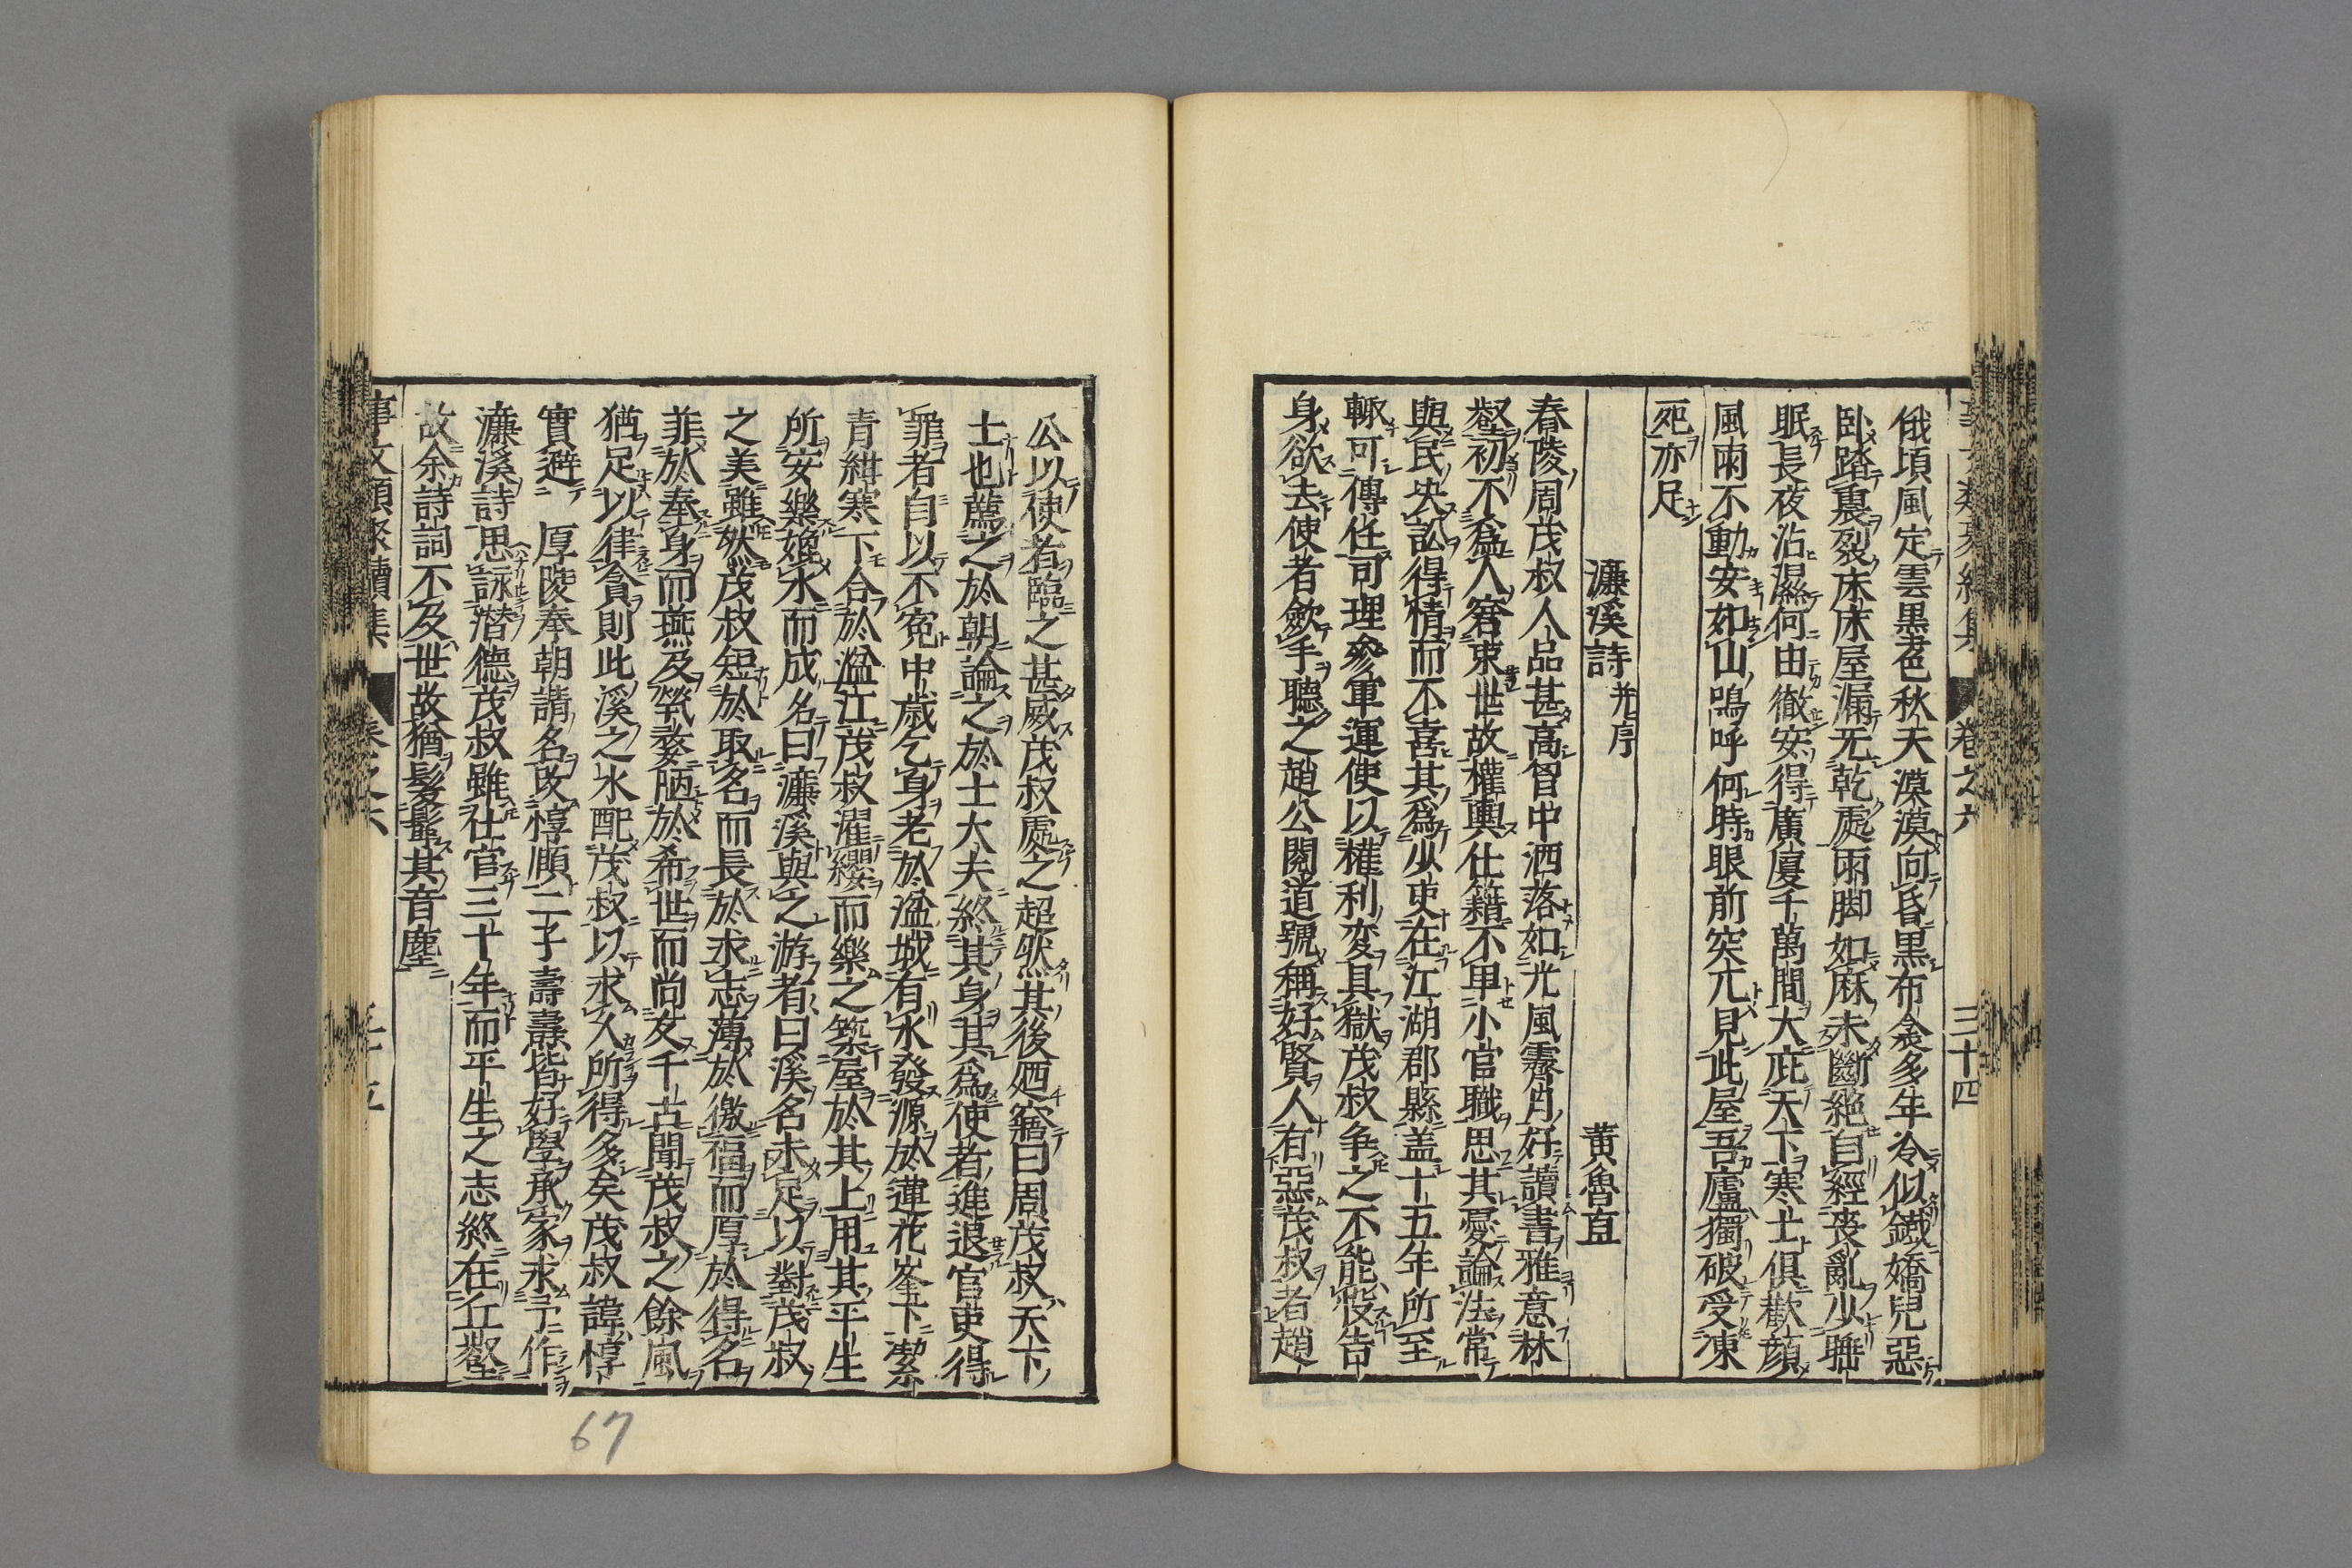 俄頃風定雲黒色秋天漠漠向昏黒布衾多年冷似鐵嬌兒惡
卧踏裏裂床床屋漏无乾處雨脚如麻未斷絶自經喪亂少睡
眠長夜沾濕何由徹安得廣廈千萬間大庇天下寒士倶歡顔
風雨不動安如山嗚呼何時眼前突兀見此屋吾廬獨破受凍
死亦足
濂溪詩 并序 黄魯直
春陵周茂叔人品甚高胷中洒落如光風霽月好讀書雅意林
壑初不爲人窘束世故權輿仕籍不卑小官職思其憂論法常
與民决訟得情而不喜其爲少吏在江湖郡縣盖十五年所至
輙可傳任司理參軍運使以權利変具獄茂叔争之不能投告
身欲去使者歛手聽之趙公閲道號稱好賢人有惡茂叔者趙
公以使者臨之甚威茂叔處之超然其後廼寤曰周茂叔天下
士也薦之於朝論之於士大夫終其身其爲使者進退官吏得
罪者自以不寃中歳乞身老於湓城有水發源於蓮花峯下潔
青紺寒下合於湓江茂叔濯纓而樂之築屋於其上用其平生
所安樂媲水而成名曰濂溪與之游者曰溪名未足以對茂叔
之美雖然茂叔短於取名而長於求志薄於徼福而厚於得名
菲於奉身而燕及煢嫠陋於希世而尚友千古聞茂叔之餘風
猶足以律貪則此溪之水配茂叔以求久所得多矣茂叔諱惇
實避 厚陵奉朝請名改惇順二子壽燾皆好學承家求予作
濂溪詩思詠潜德茂叔雖仕官三十年而平生之志終在丘壑
故余詩詞不及世故猶髣髴其音塵
事文類聚續集 卷之六
卷之六 三十四
67